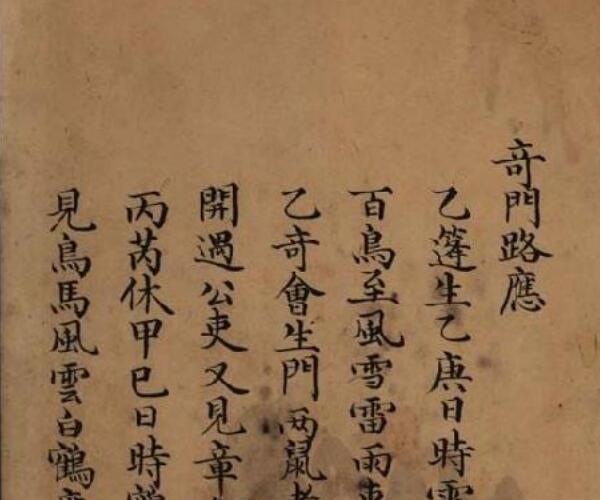 奇門路應
乙篷生乙庚日時雲
百鳥至風雪雷雨車
乙奇會生門兩鼠者
開遇公吏又見章
丙芮休甲巳日時鶴
見鳥馬風雲白鶴